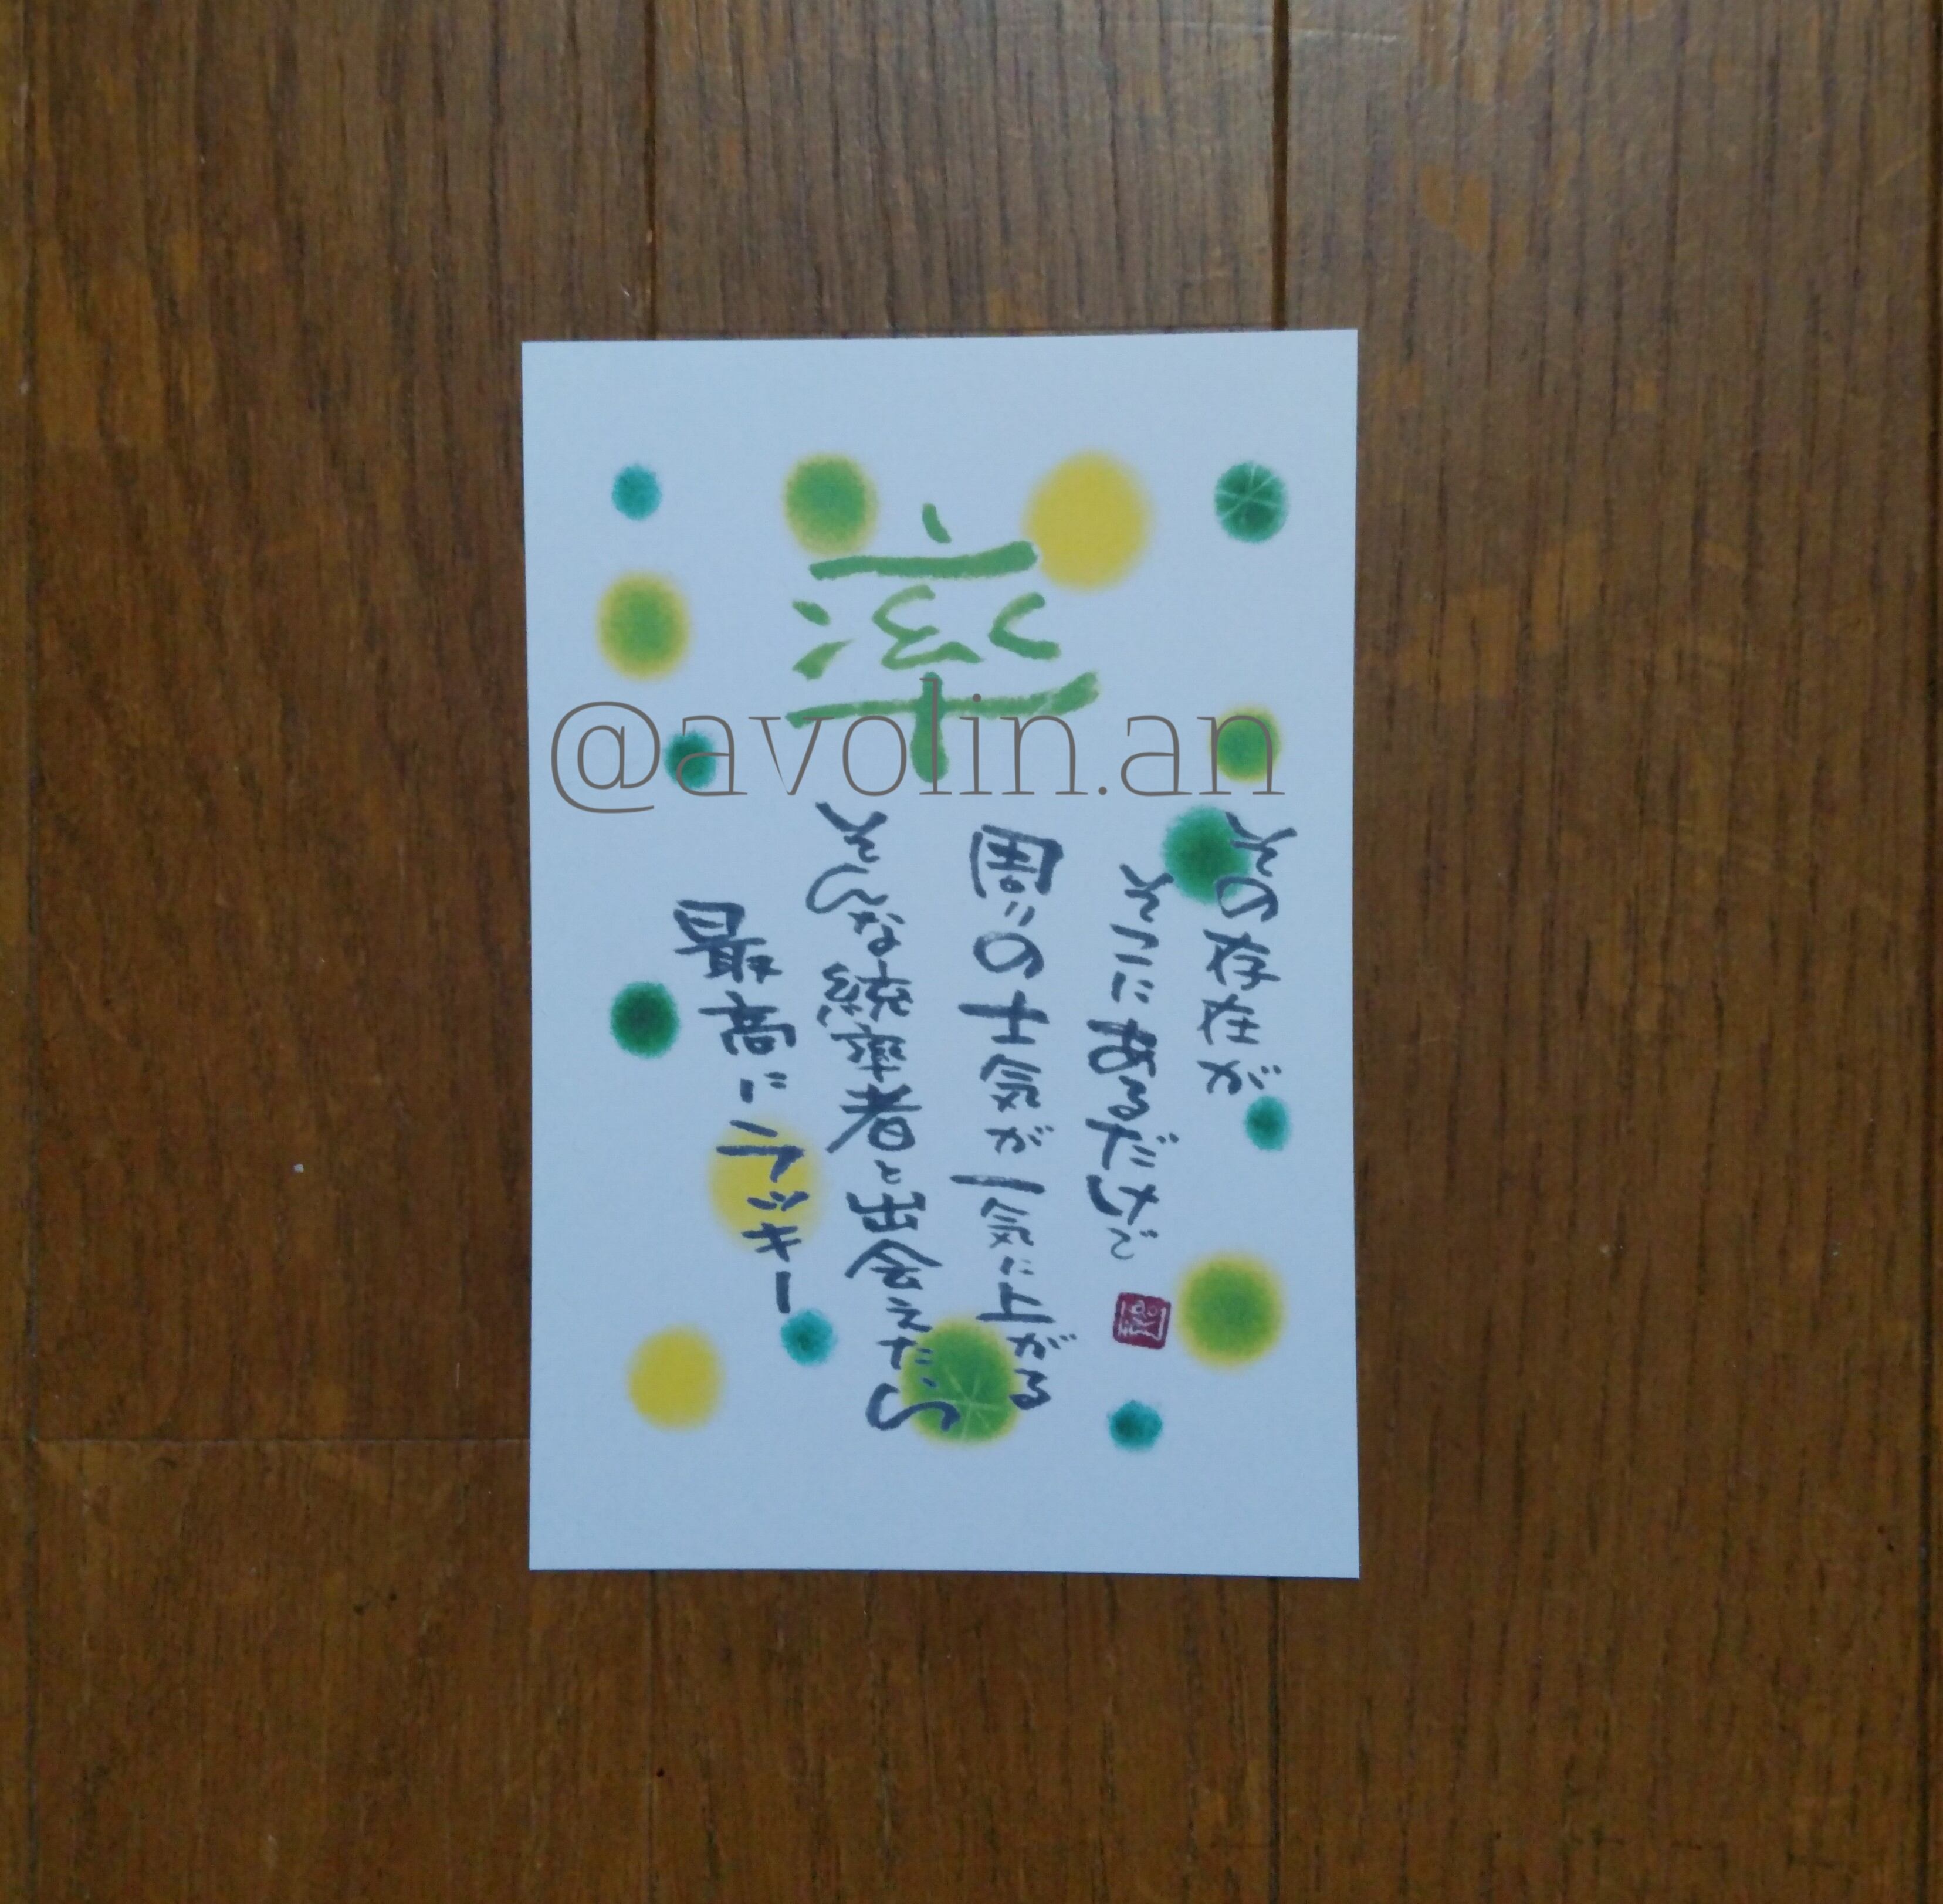 率
@avolin.an
その存在が
そこにあるだけで
周りの士気が一気に上がる
そんな統率者と出会えたら
最高にラッキー